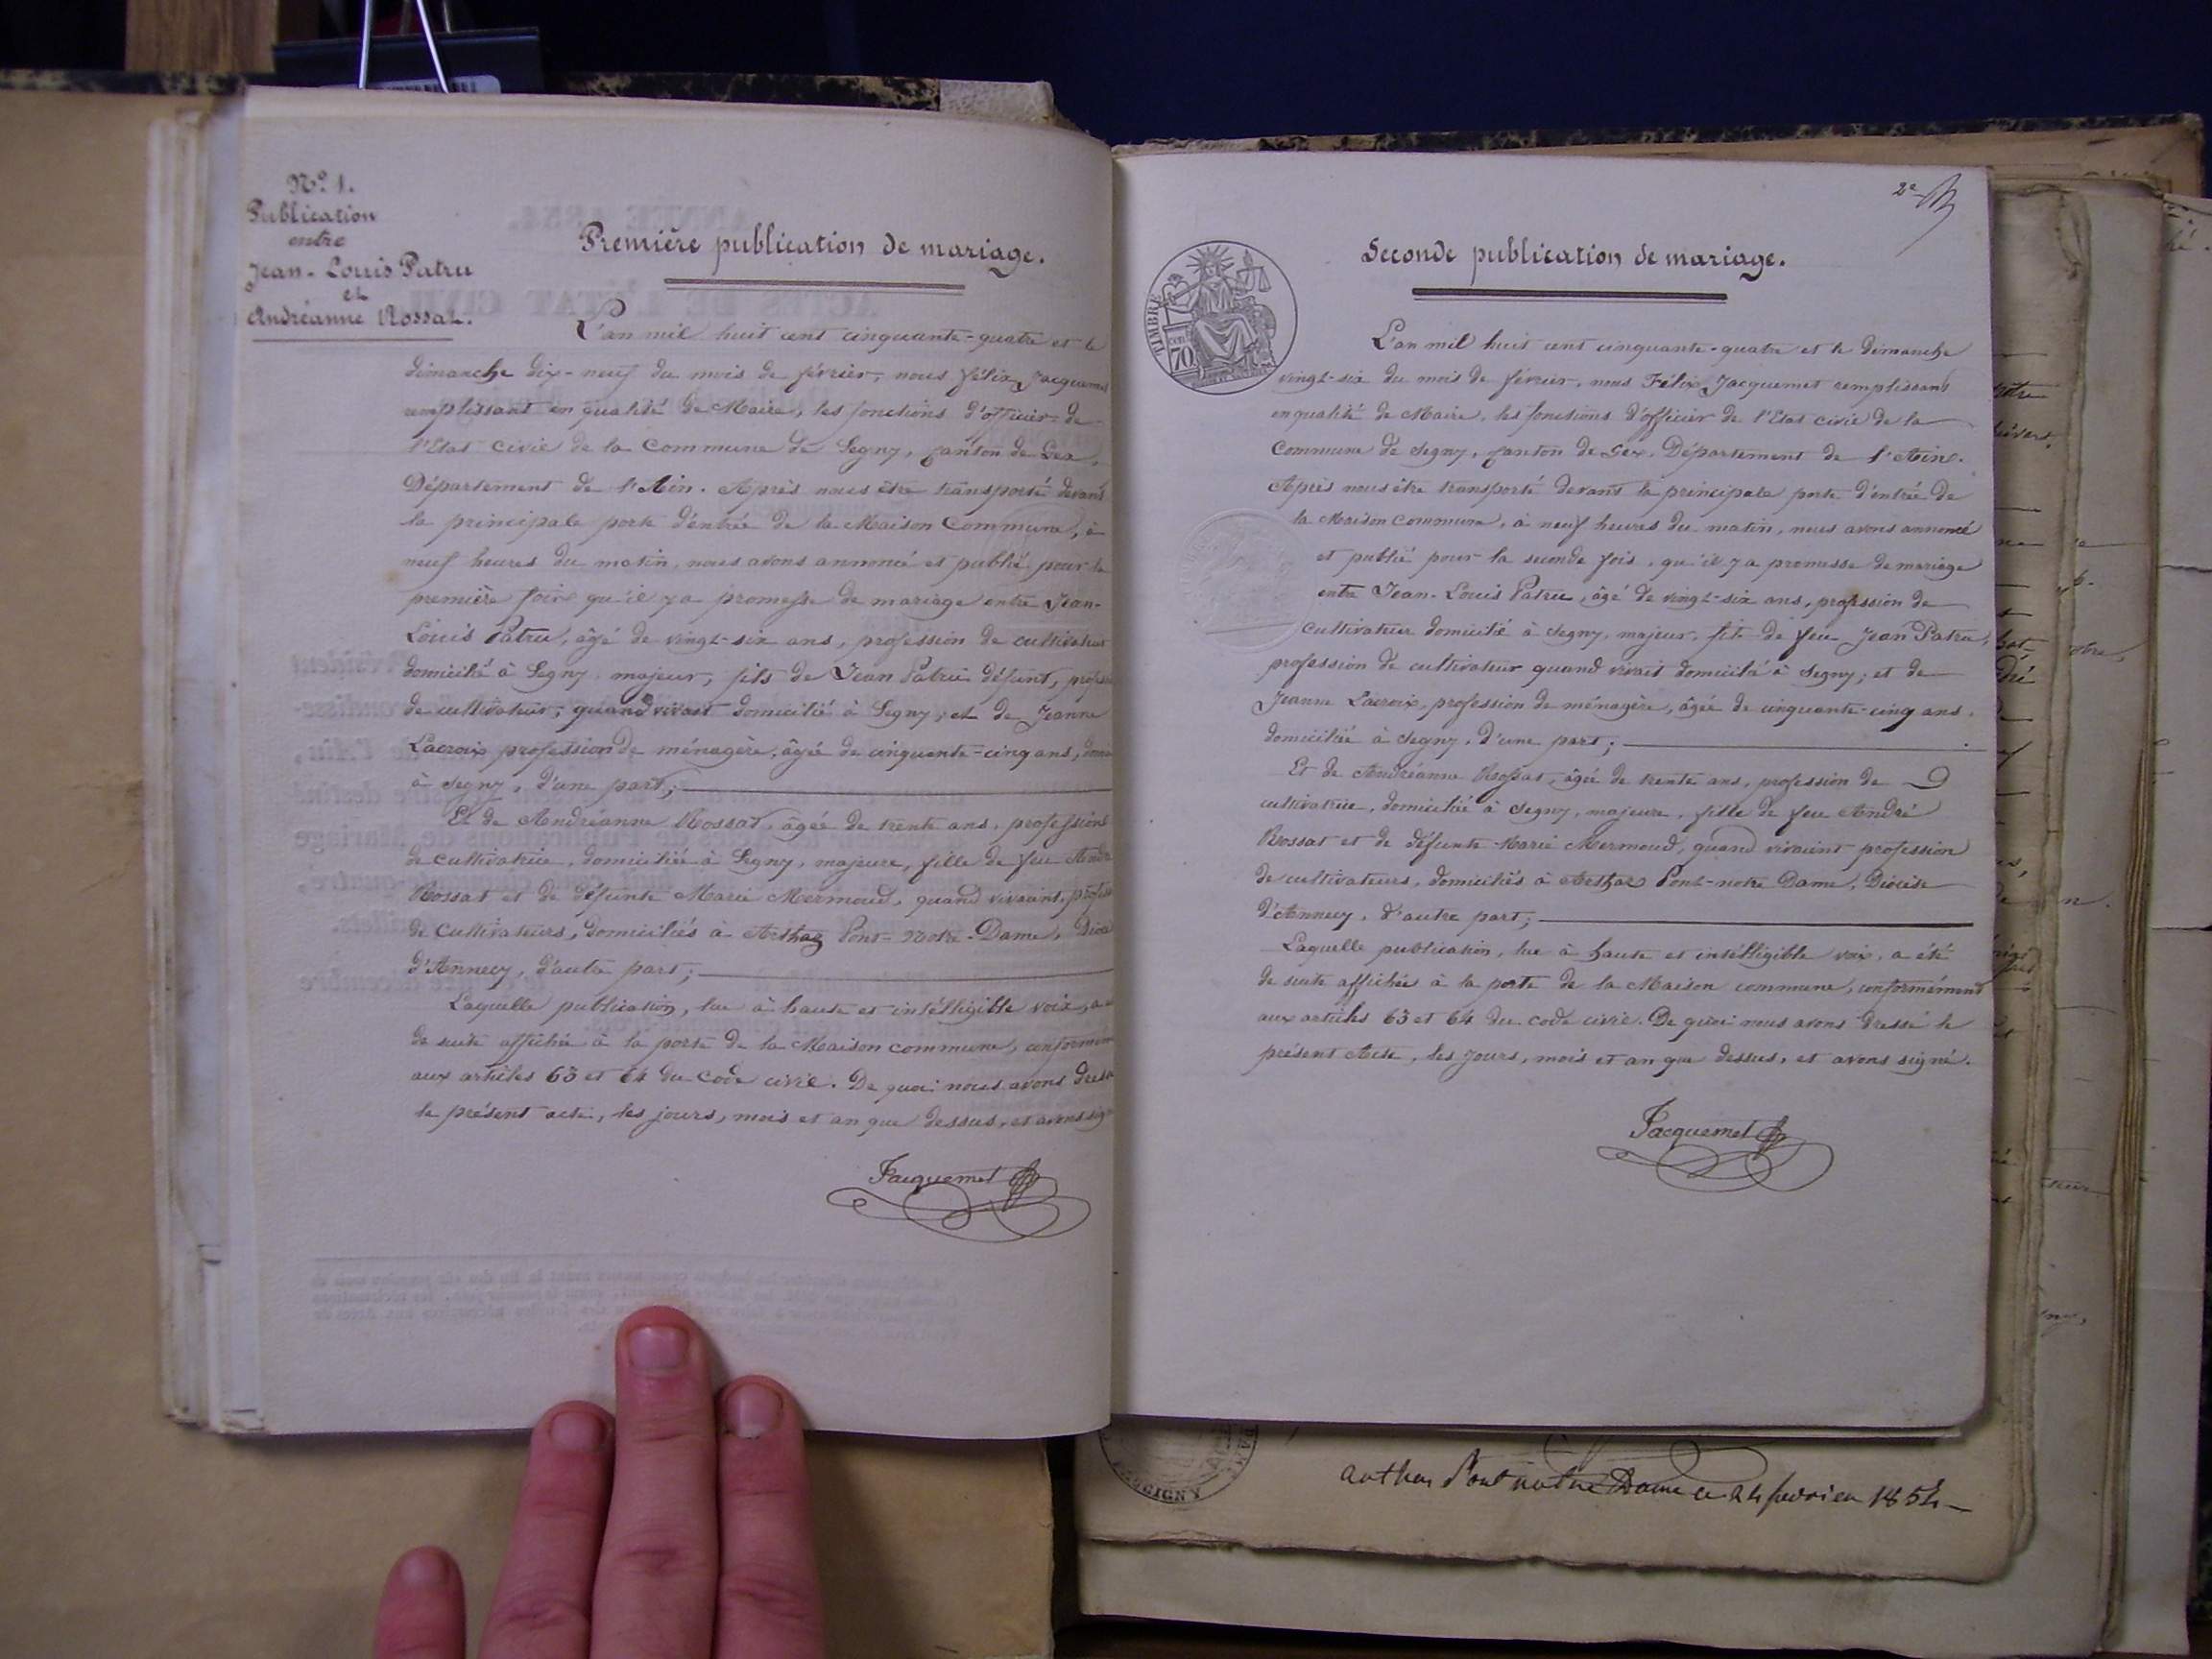 N.º 1.
Publication
entre
Jean-Louis Patru
et
Andréanne Rossat.
Première publication de mariage.
L'an mil huit cent cinquante-quatre et le
dimanche dix-neuf du mois de février, nous félix Jacquemet
remplissant en qualité de Maire, les fonctions d'officier de
l'Etat civil de la Commune de Segny, Canton de Gex,
Département de l'Ain. Après nous être transporté devant
la principale porte d'entrée de la Maison Commune, à
neuf heures du matin, nous avons annoncé et publié pour la
première fois qu'il y a promesse de mariage entre Jean-
Louis Patru, âgé de vingt-six ans, profession de cultivateur
domicilié à Segny, majeur, fils de Jean Patru défunt, profess
de cultivateur, quand vivait domicilié à Segny, et de Jeanne
Lacroix profession de ménagère, âgée de cinquante-cinq ans, domi
à Segny, d'une part;
Et de Andréanne Rossat, âgée de trente ans, profession
de cultivatrice, domiciliée à Segny, majeure, fille de feu André
Rossat et de défunte Marie Mermoud, quand vivaient, profess
de Cultivateurs, domiciliés à Arthaz Pont-Notre-Dame, Dioce
d'Annecy, d'autre part;
Laquelle publication, lue à haute et intélligible voix, a
de suite affichée à la porte de la Maison commune, conformém
aux articles 63 et 64 du Code civil. De quoi nous avons dress
le présent acte, les jours, mois et an que dessus, et avons sign
Jacquemet
2e
Seconde publication de mariage.
TIMBRE
70
L'an mil huit cent cinquante-quatre et le dimanche
vingt-six du mois de février, nous Félix Jacquemet remplissant
en qualité de Maire, les fonctions d'officier de l'Etat civil de la
Commune de Segny, Canton de Gex, Département de l'Ain.
Après nous être transporté devant la principale porte d'entrée de
la Maison Commune, à neuf heures du matin, nous avons annoncé
et publié pour la seconde fois, qu'il y a promesse de mariage
entre Jean-Louis Patru, âgé de vingt-six ans, profession de
cultivateur domicilié à Segny, majeur, fils de feu Jean Patru,
profession de cultivateur quand vivait domicilié à Segny; et de
Jeanne Lacroix, profession de ménagère, âgée de cinquante-cinq ans,
domiciliée à Segny, d'une part;
Et de Andréanne Rossat, âgée de trente ans, profession de
cultivatrice, domiciliée à Segny, majeure, fille de feu André
Rossat et de défunte Marie Mermoud, quand vivaient profession
de cultivateurs, domiciliés à Arthaz Pont-notre Dame, Diocèse
d'Annecy, d'autre part;
Laquelle publication, lue à haute et intélligible voix, a été
de suite affichée à la porte de la Maison commune, conformément
aux articles 63 et 64 du code civil. De quoi nous avons dressé le
présent Acte, les jours, mois et an que dessus, et avons signé.
Jacquemet
arthas Pont notre Dame ce 24 fevrier 1854